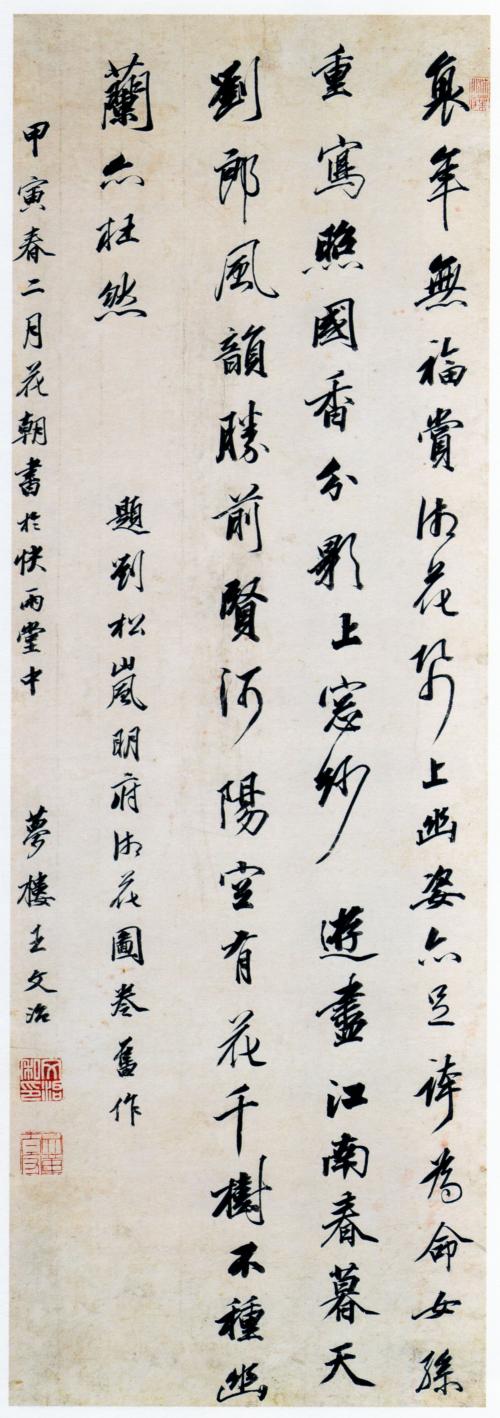 衰年無福賞湘花紙上幽姿亦足誇為命女孫
重寫照國香分影上窓紗 遊盡江南春暮天
劉郎風韻勝前賢河陽空有花千樹不種幽
蘭亦枉然
題劉松嵐明府湘花圖卷舊作
甲寅春二月花朝書於快雨堂中 夢樓王文治